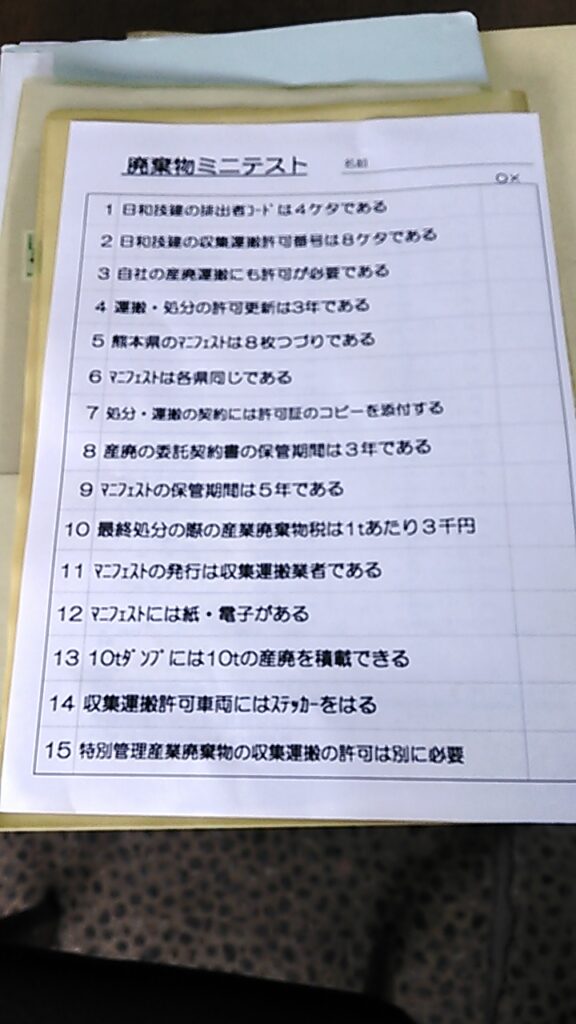 廃棄物ミニテスト
名前
○×
1 日和技建の排出者ｺｰﾄﾞは4ケタである
2 日和技建の収集運搬許可番号は8ケタである
3 自社の産廃運搬にも許可が必要である
4 運搬・処分の許可更新は3年である
5 熊本県のﾏﾆﾌｪｽﾄは8枚つづりである
6 ﾏﾆﾌｪｽﾄは各県同じである
7 処分・運搬の契約には許可証のコピーを添付する
8 産廃の委託契約書の保管期間は3年である
9 ﾏﾆﾌｪｽﾄの保管期間は5年である
10 最終処分の際の産業廃棄物税は1tあたり3千円
11 ﾏﾆﾌｪｽﾄの発行は収集運搬業者である
12 ﾏﾆﾌｪｽﾄには紙・電子がある
13 10tﾀﾞﾝﾌﾟには10tの産廃を積載できる
14 収集運搬許可車両にはｽﾃｯｶｰをはる
15 特別管理産業廃棄物の収集運搬の許可は別に必要